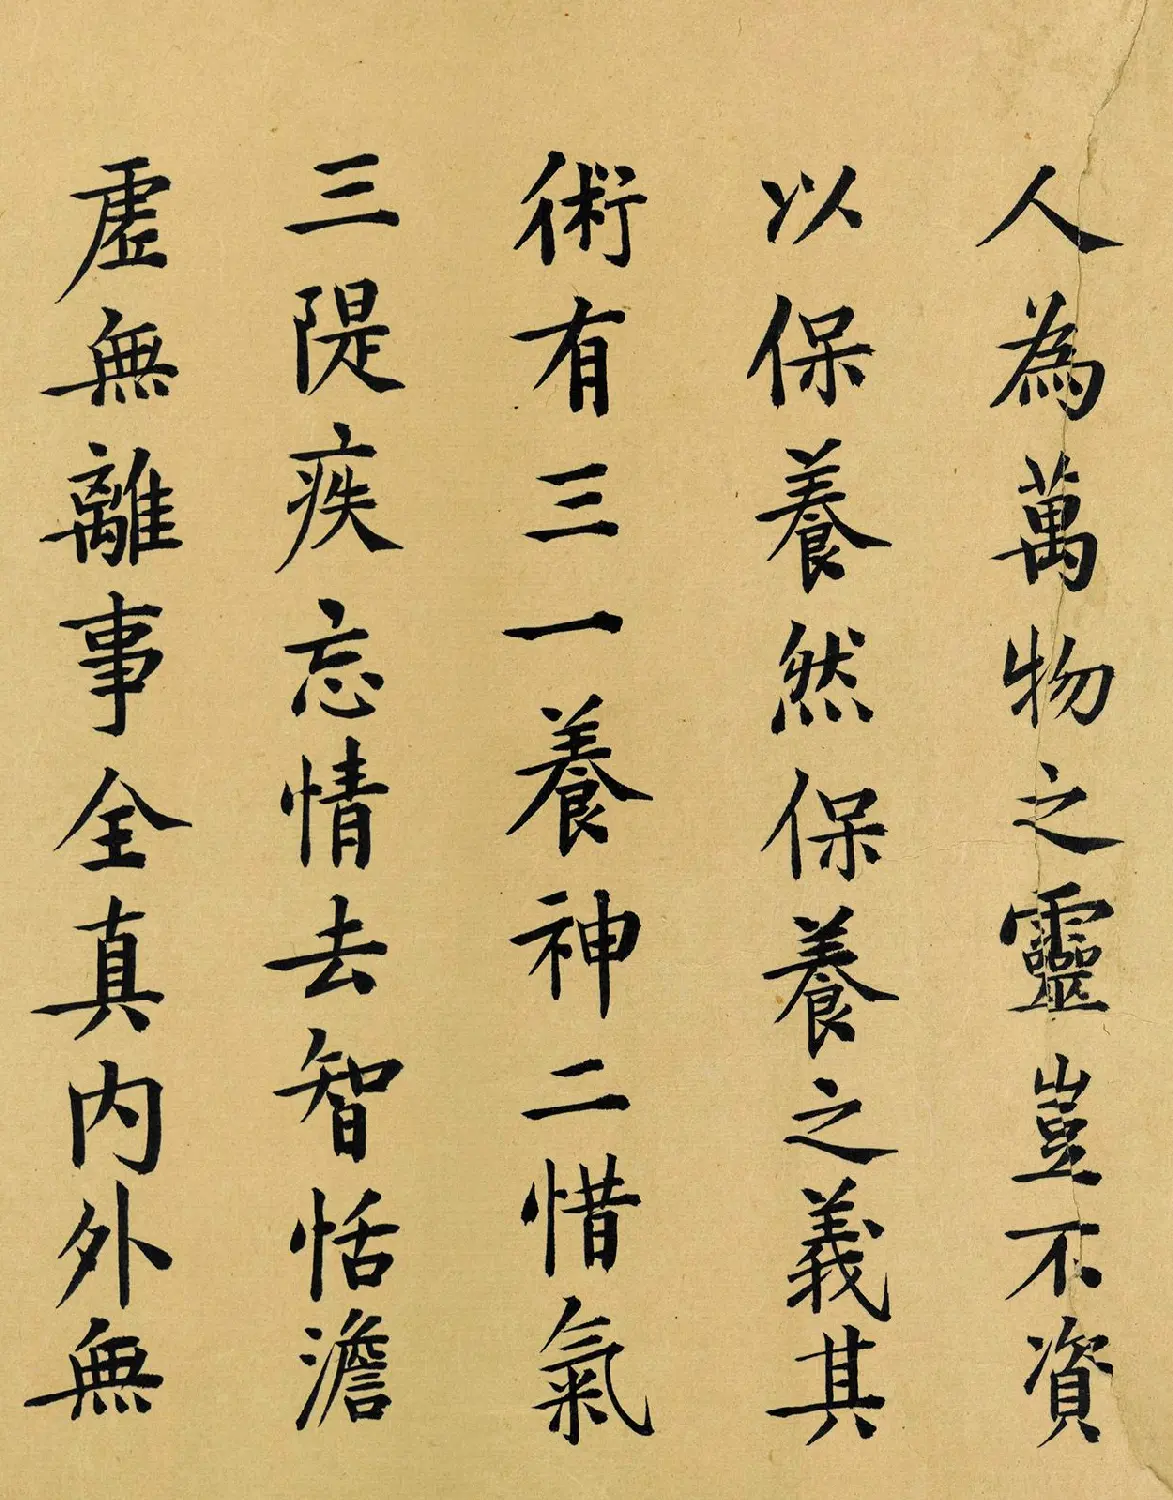 人為萬物之靈豈不資
以保養然保養之義其
術有三一養神二惜氣
三隄疾忘情去智恬澹
虛無離事全真內外無